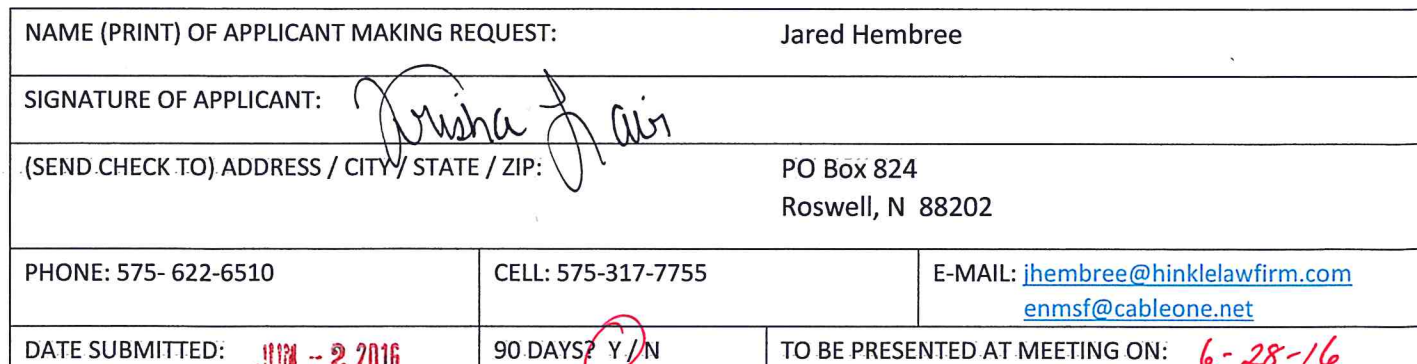 NAME (PRINT) OF APPLICANT MAKING REQUEST: Jared Hembree
SIGNATURE OF APPLICANT: Trisha Lair
(SEND CHECK TO) ADDRESS / CITY / STATE / ZIP: PO Box 824
Roswell, N 88202
PHONE: 575- 622-6510 CELL: 575-317-7755 E-MAIL: jhembree@hinklelawfirm.com
enmsf@cableone.net
DATE SUBMITTED: JUN -- 2 2016 90 DAYS? Y / N TO BE PRESENTED AT MEETING ON: 6-28-16